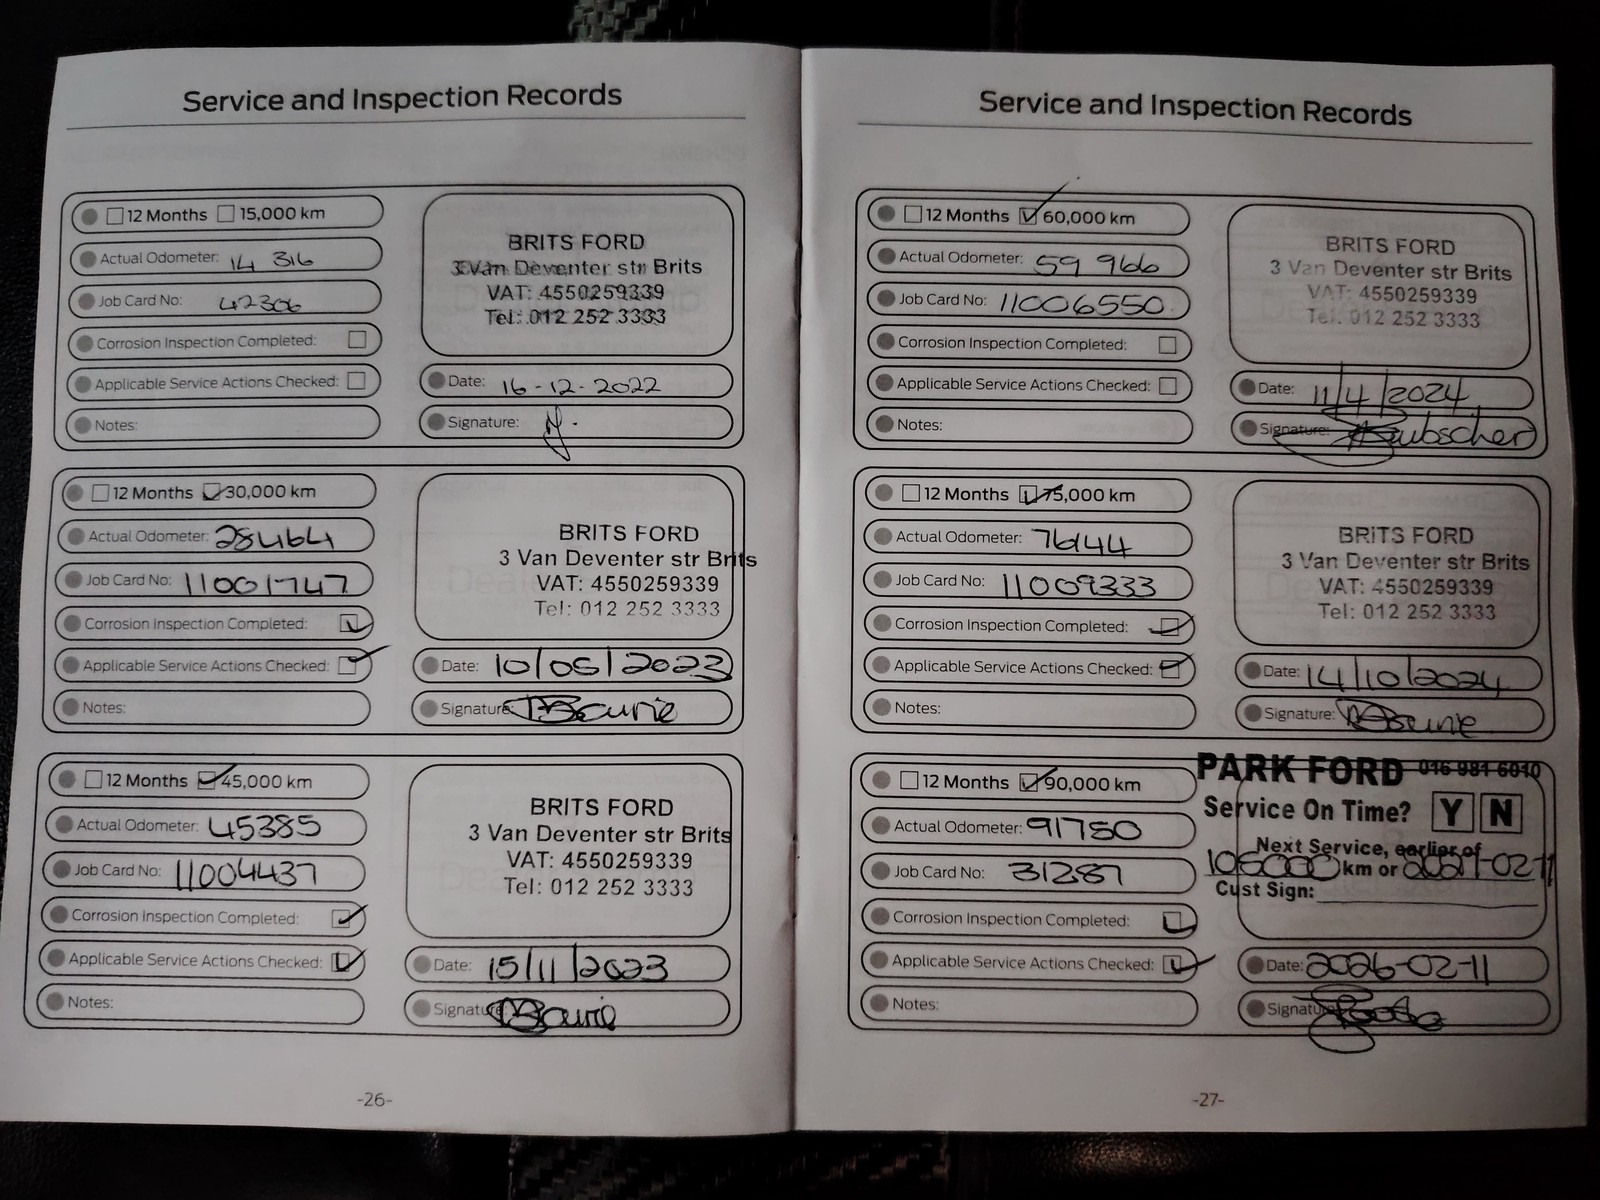 Service and Inspection Records
12 Months 15,000 km
Actual Odometer: 14 316
Job Card No: 42306
Corrosion Inspection Completed:
Applicable Service Actions Checked:
Notes:
BRITS FORD
3 Van Deventer str Brits
VAT: 4550259339
Tel: 012 252 3333
Date: 16-12-2022
Signature:
12 Months 30,000 km
Actual Odometer: 28464
Job Card No: 11001747
Corrosion Inspection Completed:
Applicable Service Actions Checked:
Notes:
BRITS FORD
3 Van Deventer str Brits
VAT: 4550259339
Tel: 012 252 3333
Date: 10/05/2023
Signature:
12 Months 45,000 km
Actual Odometer: 45385
Job Card No: 11004437
Corrosion Inspection Completed:
Applicable Service Actions Checked:
Notes:
BRITS FORD
3 Van Deventer str Brits
VAT: 4550259339
Tel: 012 252 3333
Date: 15/11/2023
Signature:
-26-
Service and Inspection Records
12 Months 60,000 km
Actual Odometer: 59 966
Job Card No: 11006550
Corrosion Inspection Completed:
Applicable Service Actions Checked:
Notes:
BRITS FORD
3 Van Deventer str Brits
VAT: 4550259339
Tel: 012 252 3333
Date: 11/4/2024
Signature:
12 Months 75,000 km
Actual Odometer: 76144
Job Card No: 11009333
Corrosion Inspection Completed:
Applicable Service Actions Checked:
Notes:
BRITS FORD
3 Van Deventer str Brits
VAT: 4550259339
Tel: 012 252 3333
Date: 14/10/2024
Signature:
12 Months 90,000 km
Actual Odometer: 91750
Job Card No: 31287
Corrosion Inspection Completed:
Applicable Service Actions Checked:
Notes:
PARK FORD 016 981 6010
Service On Time? Y N
Next Service, earlier of
105000 km or 2027-02-11
Cust Sign:
Date: 2026-02-11
Signature:
-27-